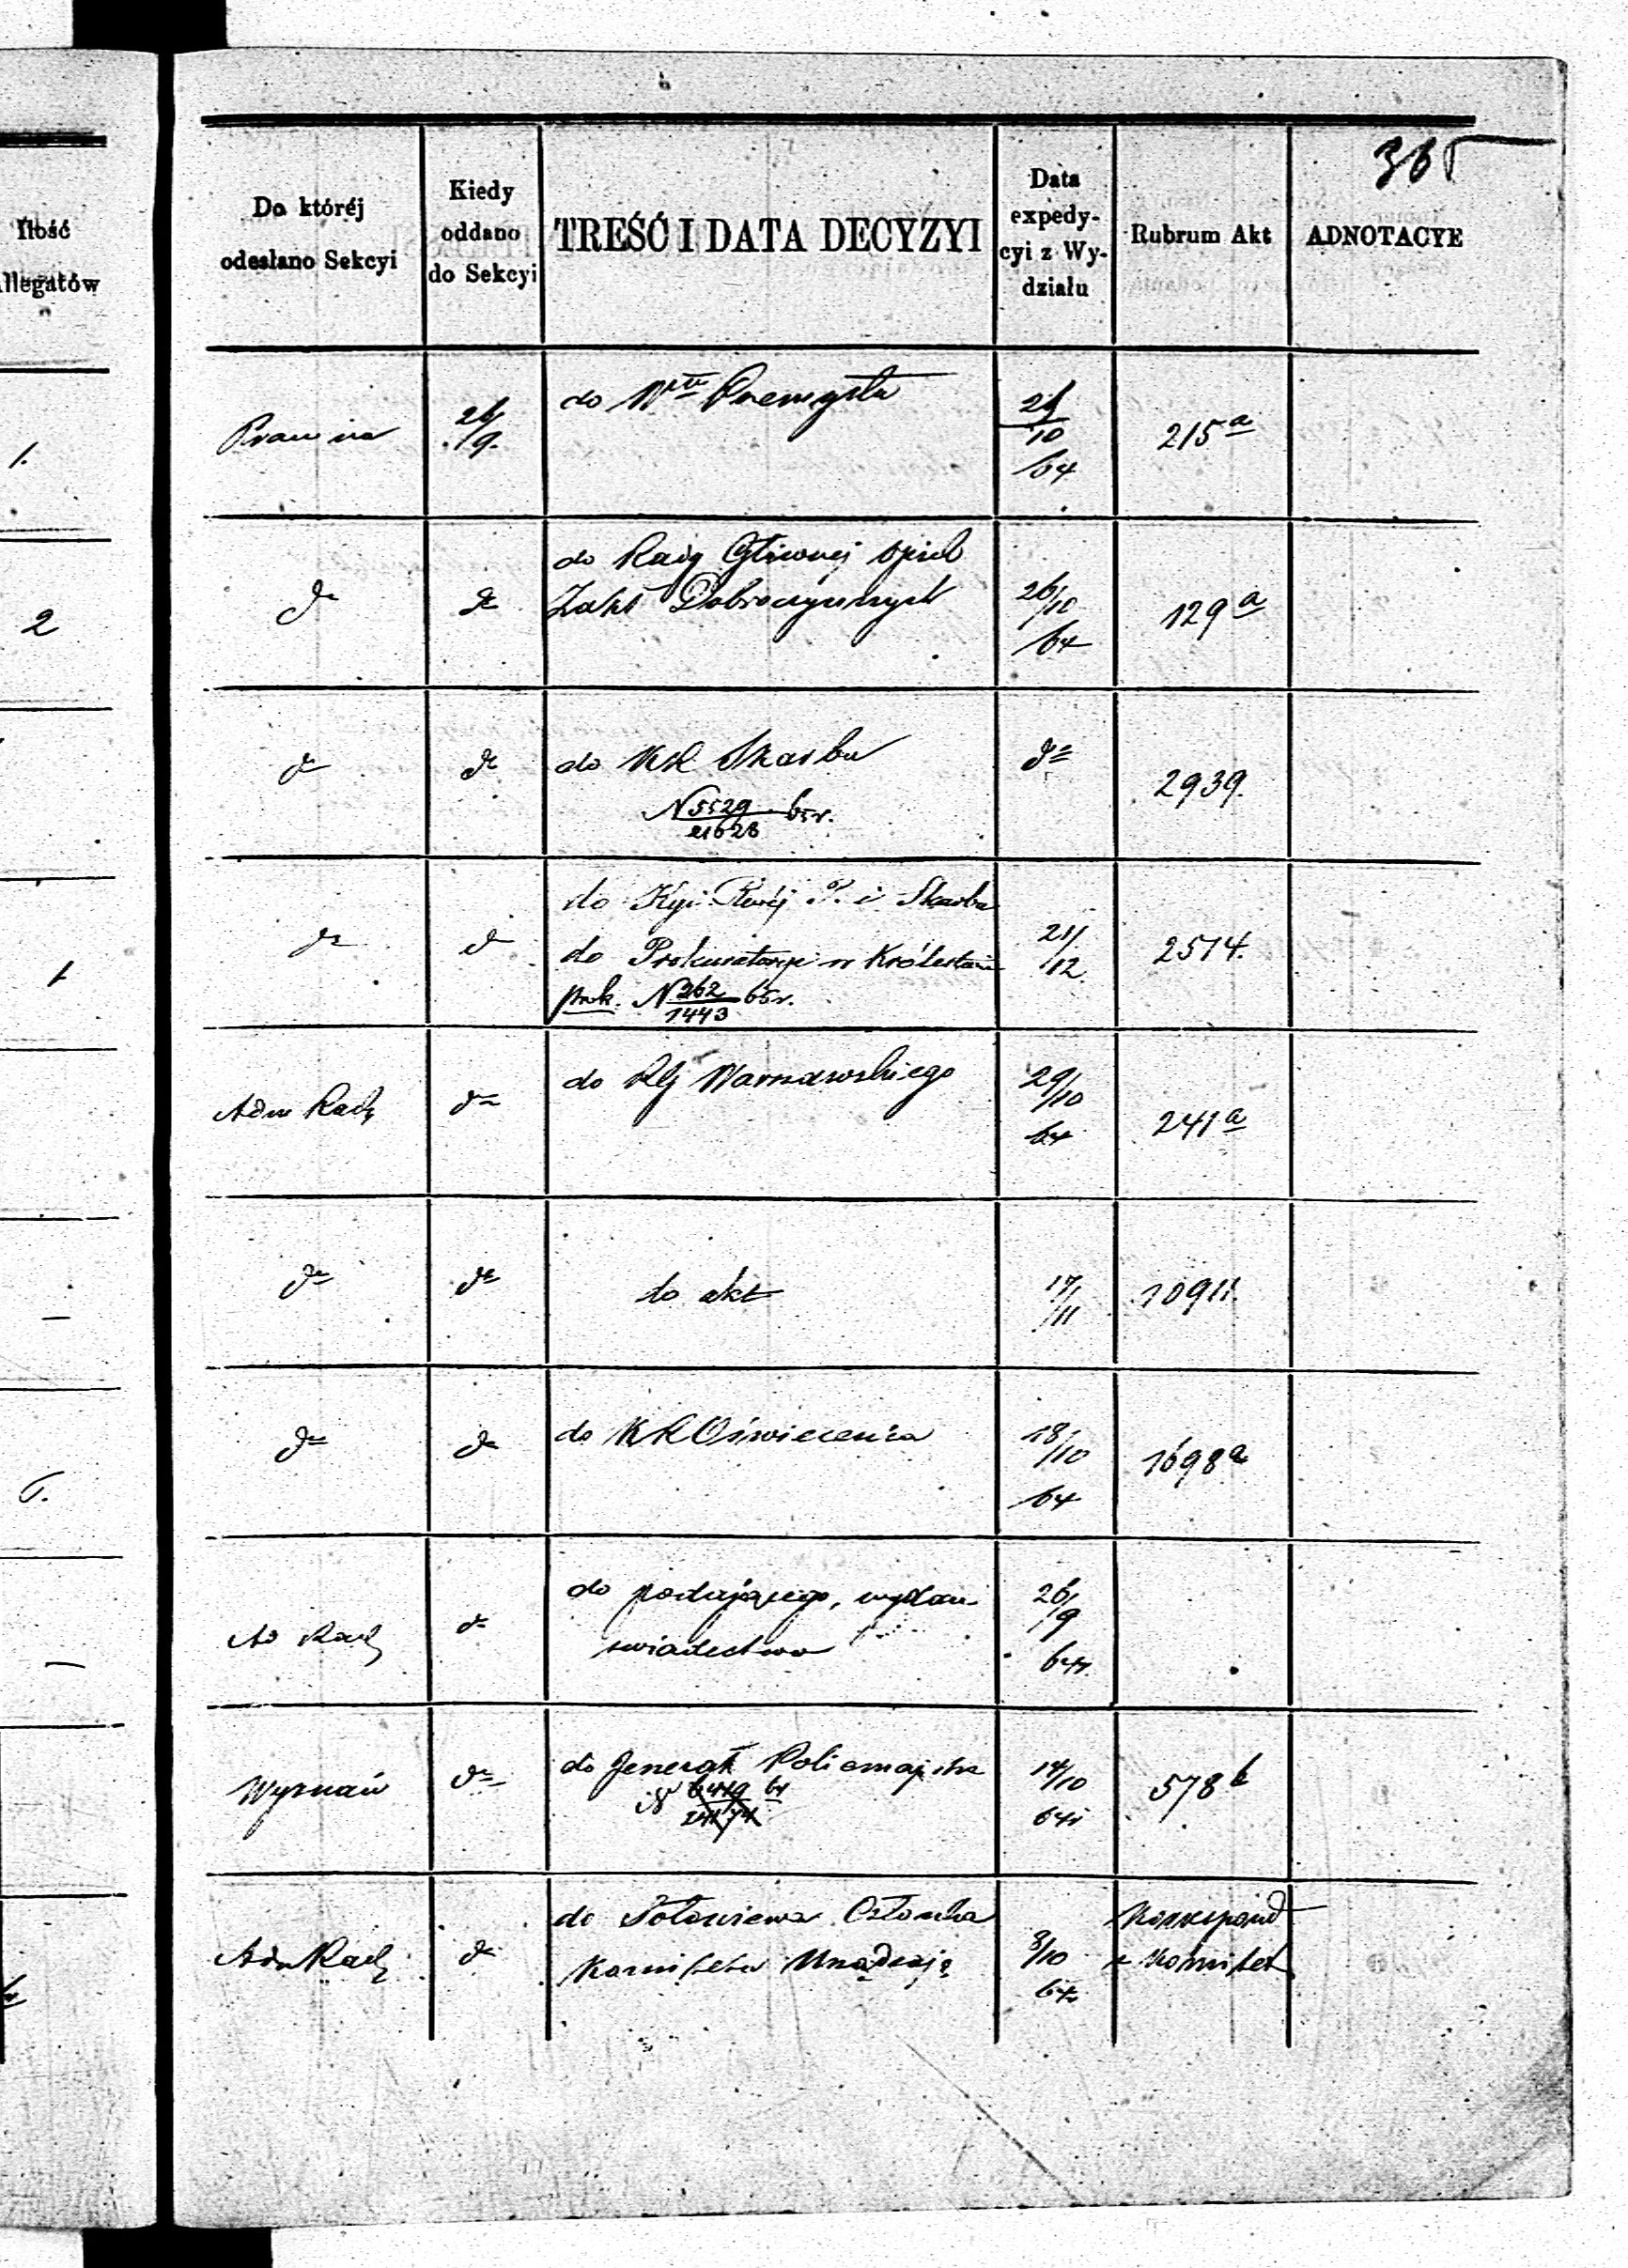 365
Ilość
llegatów
Do któréj
odesłano Sekcyi
Kiedy
oddano
do Sekcyi
TREŚĆ I DATA DECYZYI
Data
expedy-
cyi z Wy-
działu
Rubrum Akt
ADNOTACYE
1.
26/9.
do Włu Przemysłu
10
64
215 a
2
dto
dto
do Rady Głównej Opiek
Zakł Dobroczynnych
26/10
64
129 a
dto
dto
do KR Skarbu
N 5529/21628 65r.
dto
2939.
1
dto
dto
do Kyi Rząd P. i Skarbu
do Prokuratoryi w Królestwie
N 262/1443 65r.
21/12
2514.
Adm Rady
dto
do RG Warszawskiego
29/10
64
241 a
—
dto
dto
do akt
17/11
dto
dto
do KR Oświecenia
18/10
64
1698 a
—
Ad Rady
dto
do podającego, wydan
świadectwo
26/9
64r.
Wyznań
dto
do Jenerał Policmajstra
N
14/10
64r
578 b
Adm Rady
dto
do Sołowiewa Członka
Komitetu Urządzają
8/10
64r
Korrespond
z Komitet